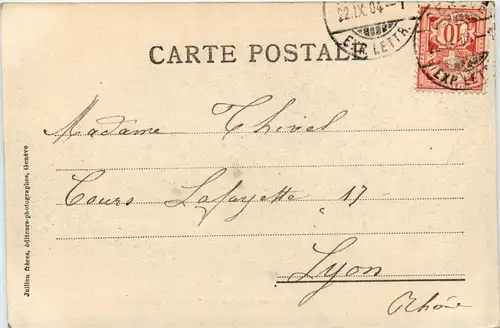 22.IX.04.-1
EXP. LETTR.
10
EXP. LETT
CARTE POSTALE
Madame Thivel
Cours Lafayette 17
Lyon
Rhône
Jullien frères, éditeurs-photographes, Genève